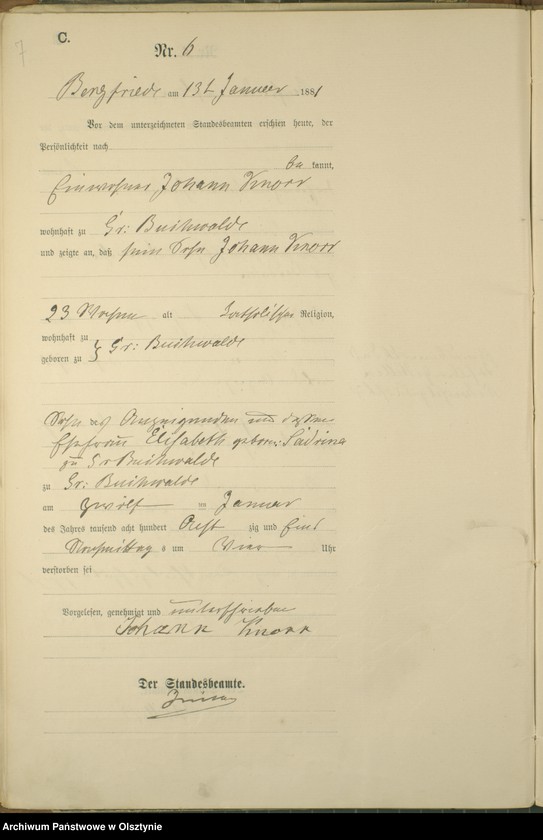 7
C.
Nr. 6
Bergfriede am 13t Januar 1881
Vor dem unterzeichneten Standesbeamten erschien heute, der
Persönlichkeit nach
be kannt,
Einwohner Johann Knorr
wohnhaft zu Gr: Buchwalde
und zeigte an, daß sein Sohn Johann Knorr
23 Wochen alt katholischer Religion,
wohnhaft zu
geboren zu } Gr: Buchwalde
Sohn des Anzeigenden und dessen
Ehefrau Elisabeth geborne
zu Gr Buchwalde
zu Gr: Buchwalde
am zwölf ten Januar
des Jahres tausend acht hundert Acht zig und Eins
Nachmittag s um Vier Uhr
verstorben sei
Vorgelesen, genehmigt und unterschrieben
Johann Knorr
Der Standesbeamte.
Archiwum Państwowe w Olsztynie